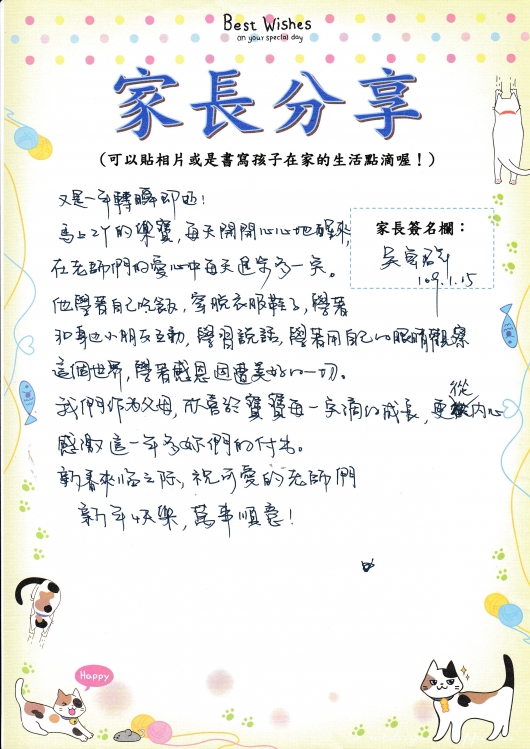 Best Wishes
on your special day
家長分享
(可以貼相片或是書寫孩子在家的生活點滴喔！)
又是一年轉瞬即逝!
馬上2Y的樂寶,每天開開心心地醒來,
在老師們的愛心中每天進步多一矣。
他學著自己吃飯,穿脫衣服鞋子,學著
和身邊小朋友互動,學習說話,學著用自己的眼睛觀察
這個世界,學著感恩周遭美好的一切。
我們作為父母,欣喜於寶寶每一矣滴的成長,更從內心
感激這一年多妳們的付出。
新春來臨之际,祝可愛的老師們
新年快樂,萬事順意!
家長簽名欄：
109.1.15
Happy